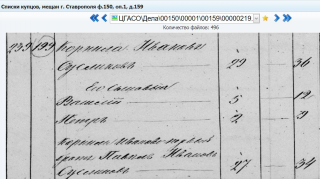 Списки купцов, мещан г. Ставрополя ф.150, оп.1, д.159
ЦГАСО\Дела\00150\00001\00159\00000219.
Количество файлов: 496
239 199 Корнила Иванова
Сусликов 29 36
Его сыновья
Василий 5 12
Петръ 2 9
Корнила Иванова
братъ Павелъ Иванов
Сусликовъ 27 34